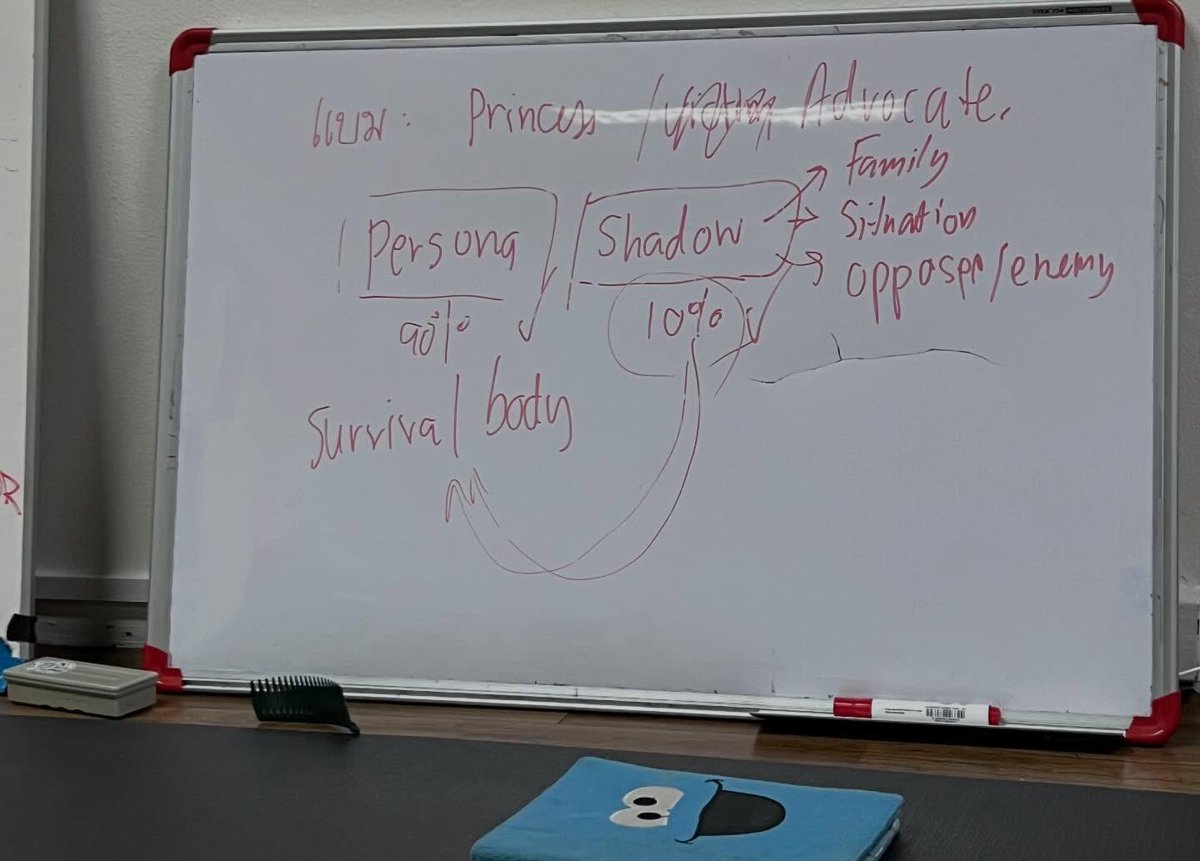 แบม : Princess / Advocate.
Persona
Shadow
Family
Situation
opposer/enemy
90%
10%
Survival body
R